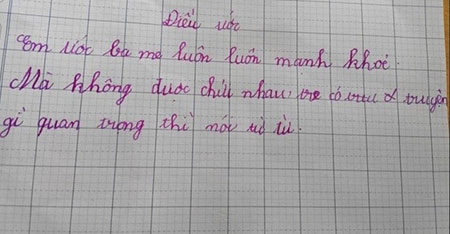 Điều ước
Em ước ba mẹ luôn luôn mạnh khỏe.
Mà không được chửi nhau, có truyện
gì quan trọng thì nói từ từ.